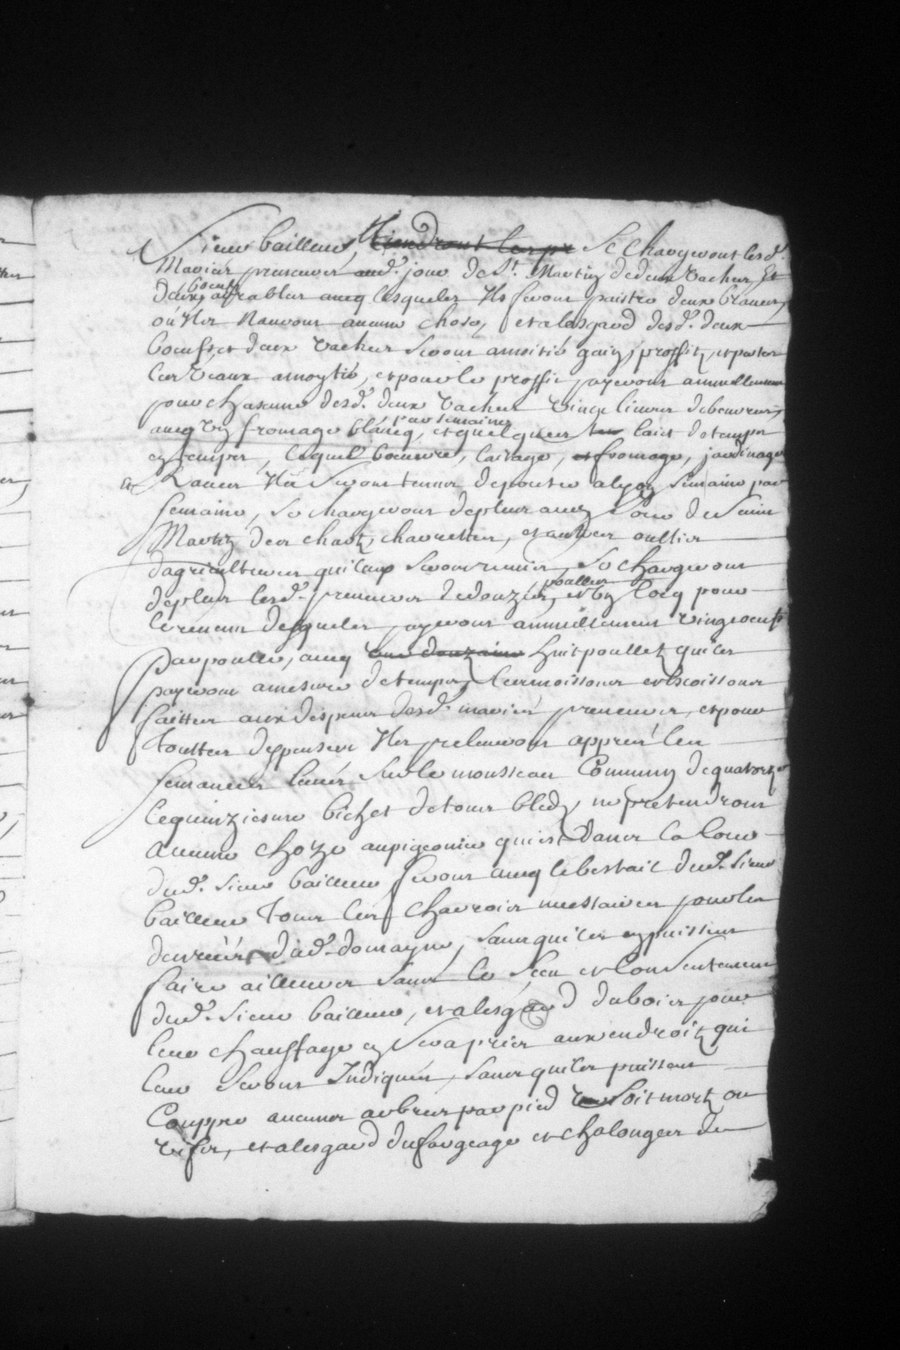 Sieur bailleur, tiendront les pr se chargeront lesd.
Mariés preneurs aud. jour de St. Martin de deux vaches et
deux boeufs arrables aveq lesquels ils feront paistre
ou ils n'auront aucune chose, et a lesgard desd. deux
boeufs et deux vaches seront a moitié gain, proffit, et perte
les veaux a moytié, et pour le proffit payeront annuellement
pour chascune desd. deux vaches vingt livres de beurre,
aveq un fromage blancq, et quelques laict de temps
en temps, lequel beurre, laitage, et fromage, jardinage
Raves ils seront tenus de porter a lyon semaine par
semaine, se chargeront de plus aud. jour de Saint
Martin des chars, charrettes, et autres oultils
d'agriculture qui leur seront remis, se chargeront
de plus lesd. preneurs de douze poulles, et un coq pour
le revenu desquels payeront annuellement vingt oeufs
par poulle, aveq une douzaine huit poullets qu'ils
payeront a mesure de temps, les moissons et escoissons
faittes aux despens desd. mariés preneurs, et pour
touttes despenses ils preleveront apprès les
semances levés sur le monsseau commung de quatorze
le quinziesme bichet de tous bleds, ne pretendront
aucune choze au pigeonier qui est dans la cour
dud. sieur bailleur feront aveq le bestail dud. sieur
bailleur tous les charrois necessaires pour les
denrées dud. domayne, sans qu'ils en puissent
faire ailleurs sans le sceu et consentement
dud. sieur bailleur, et a lesgard du bois pour
leur chauffage en sera pris aux endroits qui
leur seront indiqués, sans qu'ils puissent
coupper aucuns arbres par pied soit morts ou
vifs, et a lesgard du fangeage et chalonges de